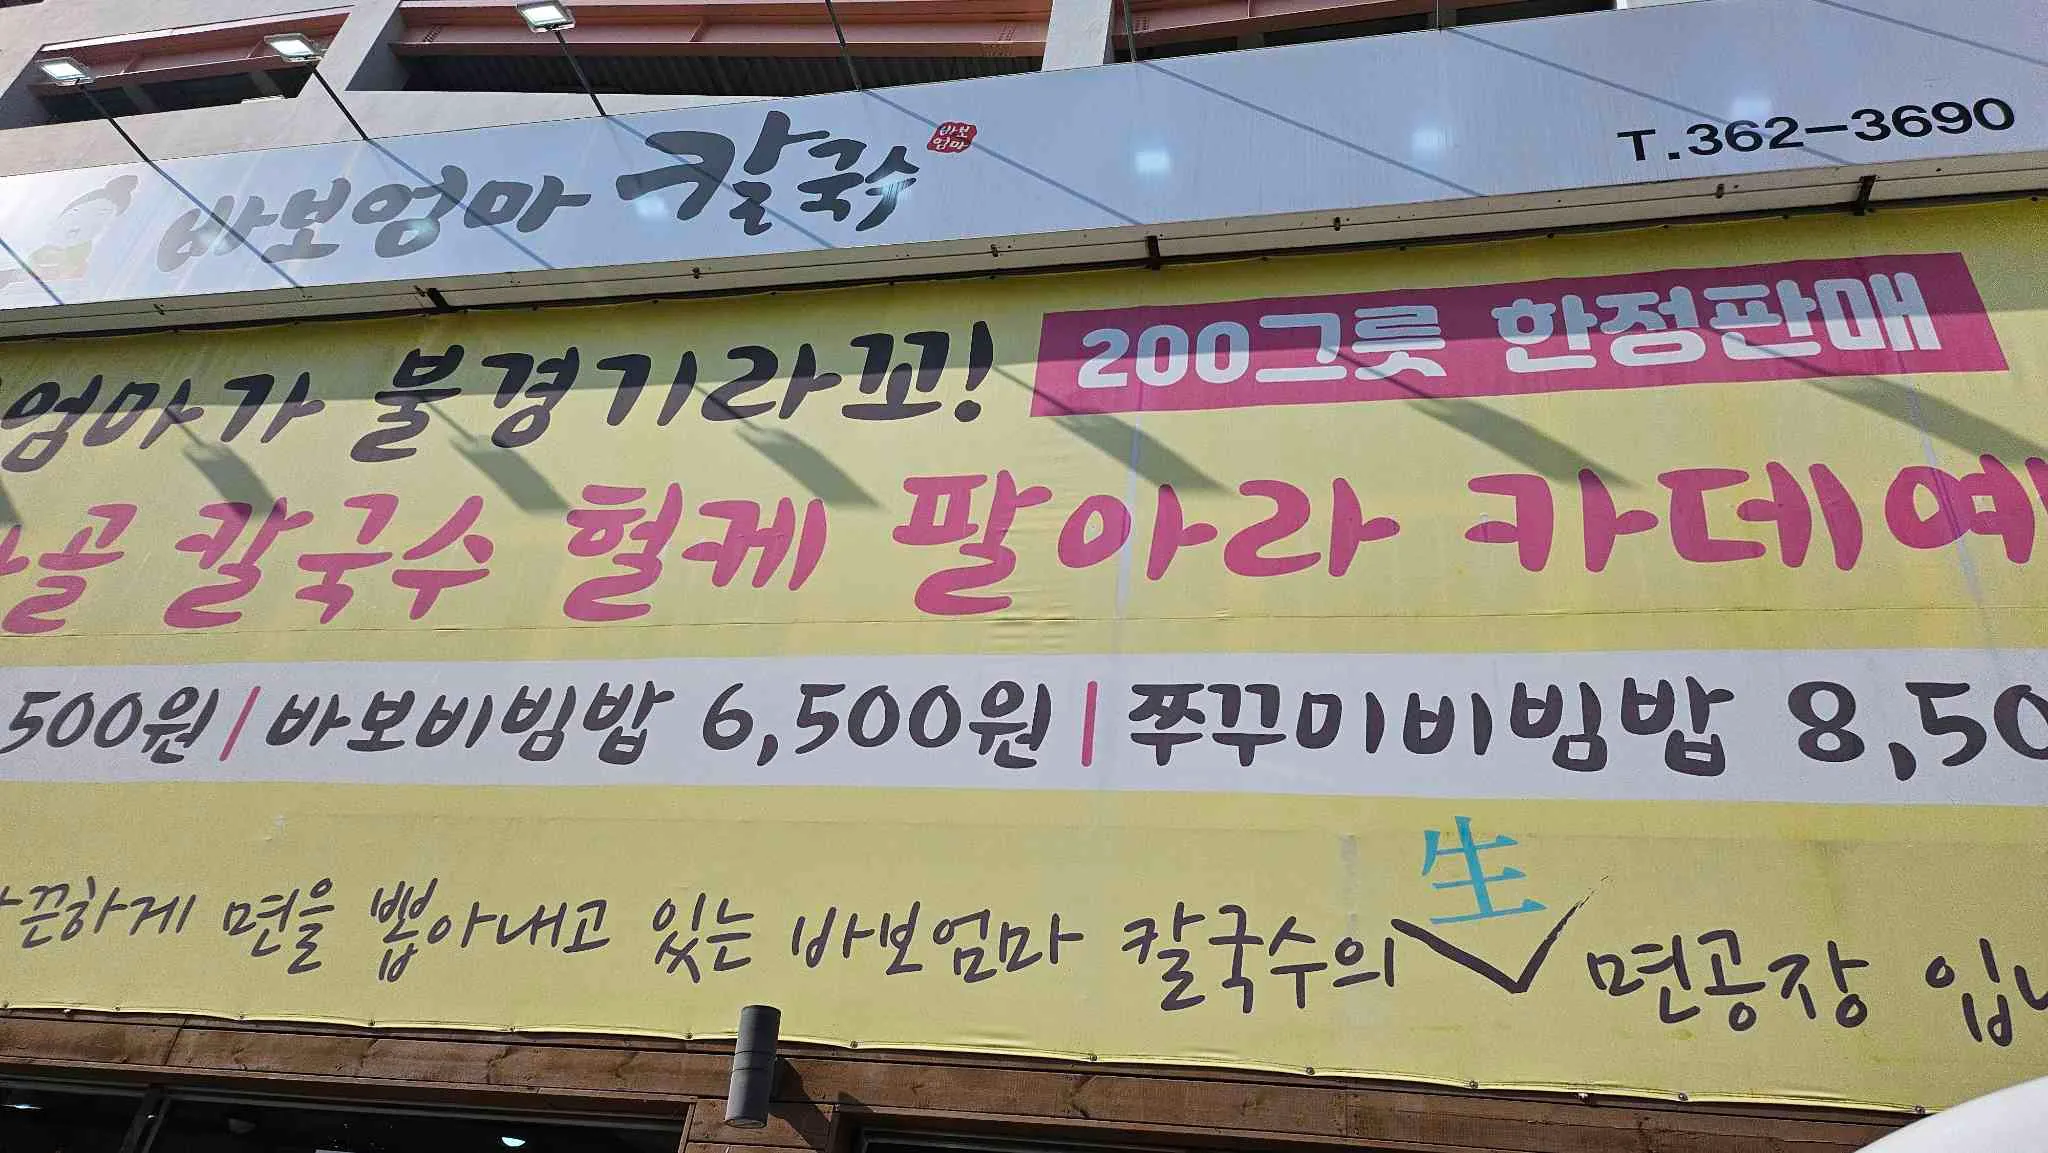 바보엄마 칼국수 바보엄마
T.362-3690
엄마가 불경기라꼬! 200그릇 한정판매
골 칼국수 헐케 팔아라 카데예
500원 | 바보비빔밥 6,500원 | 쭈꾸미비빔밥 8,50
끈하게 면을 뽑아내고 있는 바보엄마 칼국수의 生 면공장 입